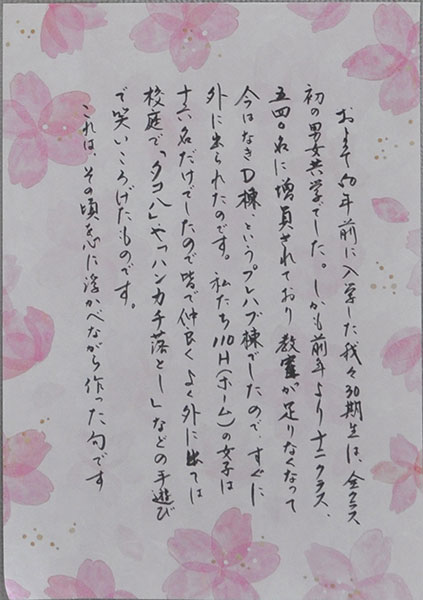 およそ50年前に入学した我々30期生は、全クラス
初の男女共学でした。しかも前年より十二クラス、
五四〇名に増員されており教室が足りなくなって
今はなきD棟、というプレハブ棟でしたので、すぐに
外に出られたのです。私たち110H(ホーム)の女子は
十六名だけでしたので皆で仲良くよく外に出ては
校庭で「タコ八」や「ハンカチ落とし」などの手遊び
で笑いころげたものです。
これは、その頃を心に浮かべながら作った句です